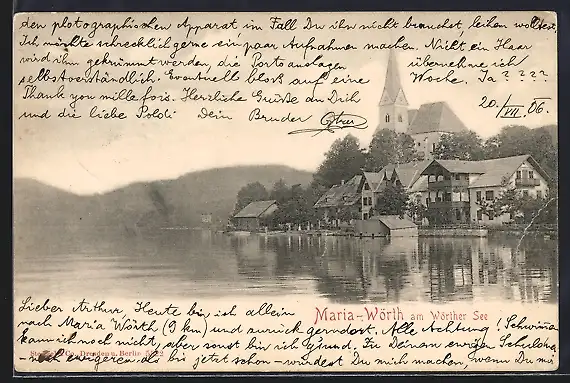 den photographischen Apparat im Fall Du ihn nicht brauchst, leihen wolltest,
Ich möchte schrecklich gerne ein paar Aufnahmen machen. Nicht ein Haar
wird ihm gekrümmt werden, die Portoauslagen übernehme ich
selbstverständlich. Eventuell bloß auf eine Woche. Ja? ? ? ?
Thank you mille fois. Herzliche Grüße an Dich
und die liebe Poldi Dein Bruder
20./VII. 06.
Maria-Wörth am Wörther See
Lieber Arthur, Heute bin ich allein
nach Maria Wörth (9 km) und zurück gerudert. Alle Achtung! Schwimmen
kann ich noch nicht, aber sonst bin ich g'sund. Zu Deinem ewigen Schuldner
- noch ewigeren als bis jetzt schon - würdest Du mich machen, wenn Du mir
Dresden & Berlin